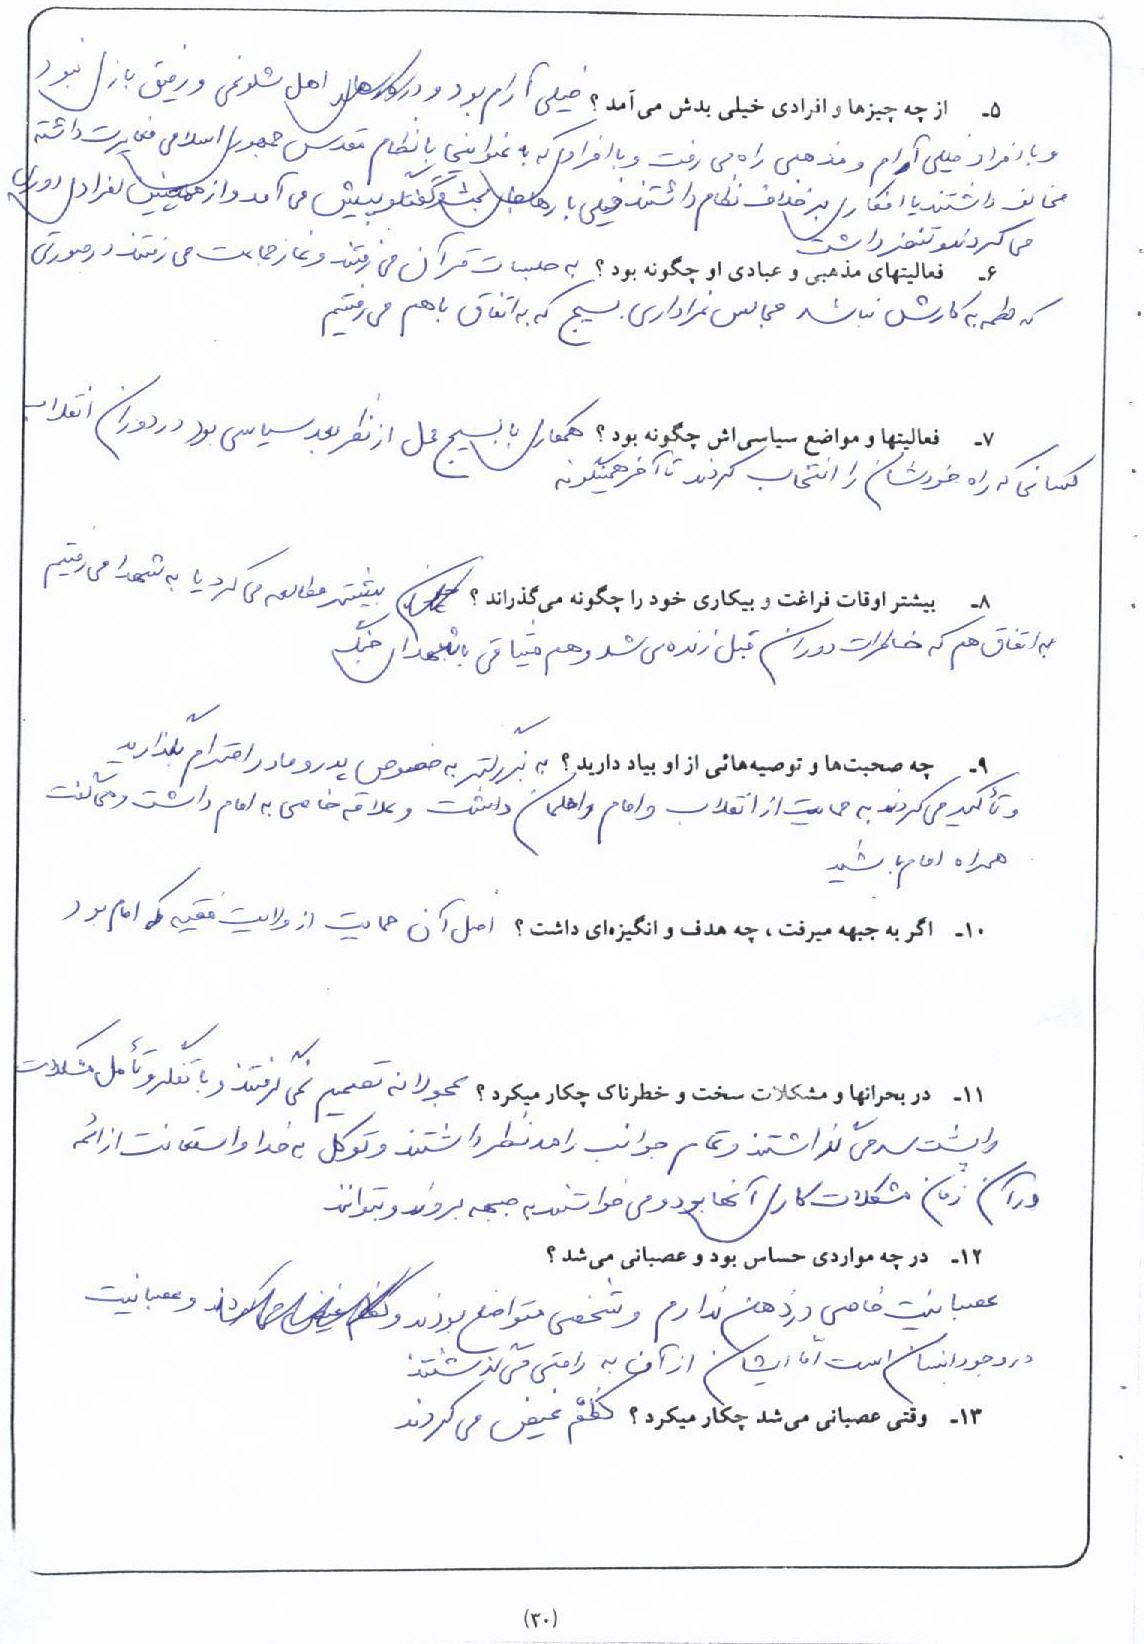 ۵ـ از چه چیزها و افرادی خیلی بدش می‌آمد ؟ خیلی آرام بود و در کارهای اهل شلوغی و رفیق بازی نبود
و با افراد خیلی آرام و مذهبی راه می رفت و با افرادی که به عنوانی با نظام مقدس جمهوری اسلامی مغایرت داشته
مخالف داشتند یا افکاری بر خلاف نظام داشتند خیلی بارها جای بحث و گفتگو پیش می آمد و از همچنین افراد دوری
می کردند و تنفر داشت
۶ـ فعالیتهای مذهبی و عبادی او چگونه بود ؟ به جلسات قرآن می رفتند و نماز جماعت می رفتند در صورتی
که لطمه به کارش نباشد مجالس عزاداری بسیج که به اتفاق با هم می رفتیم
۷ـ فعالیتها و مواضع سیاسی‌اش چگونه بود ؟ همکاری با بسیج محل از نظر بعد سیاسی بود در دوران انقلاب
کسانی که راه خودشان را انتخاب کردند تا آخر همینگونه
۸ـ بیشتر اوقات فراغت و بیکاری خود را چگونه می‌گذراند ؟ بیشتر مطالعه می کرد یا به شهدا می رفتیم
به اتفاق هم که خاطرات دوران قبل زنده می شد و هم میثاقی با شهدای جنگ
۹ـ چه صحبت‌ها و توصیه‌هائی از او بیاد دارید ؟ به بزرگتر به خصوص پدر و مادر احترام بگذارید
و تأکید می کردند به حمایت از انقلاب و امام و اطمینان داشت و علاقه خاصی به امام داشت و می گفت
همراه امام باشید
۱۰ـ اگر به جبهه میرفت ، چه هدف و انگیزه‌ای داشت ؟ اصل آن حمایت از ولایت فقیه که امام بود
۱۱ـ در بحرانها و مشکلات سخت و خطرناک چکار میکرد ؟ عجولانه تصمیم نمی گرفتند و با تفکر و تأمل مشکلات
را پشت سر می گذاشتند و تمام جوانب را مد نظر داشتند و توکل به خدا و استعانت از ائمه
در آن زمان مشکلات کاری آنها بود و می خواستند به جبهه بروند و بتوانند
۱۲ـ در چه مواردی حساس بود و عصبانی می‌شد ؟
عصبانیت خاصی در ذهن ندارم و شخصی متواضع بودند و عصبانیت
در وجود انسان است اما ایشان از آن به راحتی می گذشتند
۱۳ـ وقتی عصبانی می‌شد چکار میکرد ؟ کظم غیض می کردند
(۳۰)